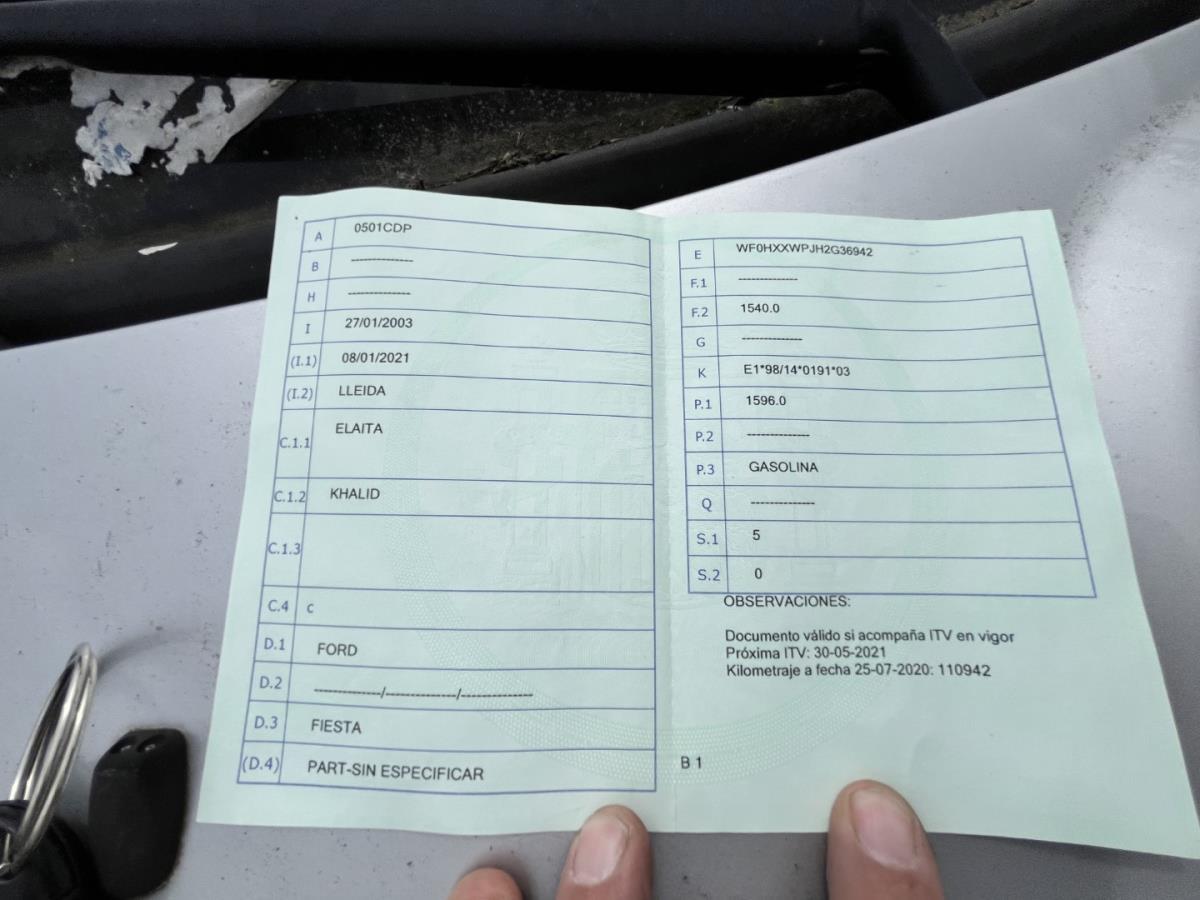 A 0501CDP
B --------------
H --------------
I 27/01/2003
(I.1) 08/01/2021
(I.2) LLEIDA
C.1.1 ELAITA
C.1.2 KHALID
C.1.3
C.4 c
D.1 FORD
D.2 --------------/--------------/--------------
D.3 FIESTA
(D.4) PART-SIN ESPECIFICAR
E WF0HXXWPJH2G36942
F.1 --------------
F.2 1540.0
G --------------
K E1*98/14*0191*03
P.1 1596.0
P.2 --------------
P.3 GASOLINA
Q --------------
S.1 5
S.2 0
OBSERVACIONES:
Documento válido si acompaña ITV en vigor
Próxima ITV: 30-05-2021
Kilometraje a fecha 25-07-2020: 110942
B 1